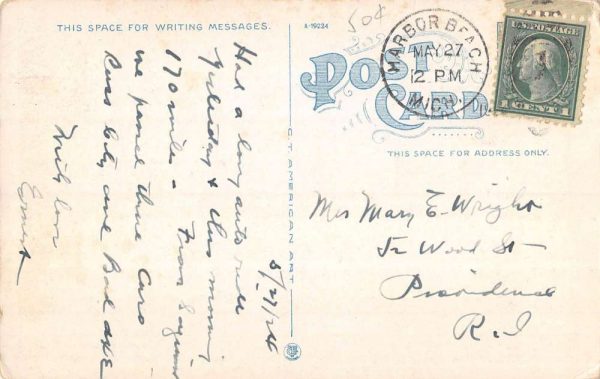 THIS SPACE FOR WRITING MESSAGES.
A-19224
50¢
POST
CARD
HARBOR BEACH
MAY 27
12 P.M.
MICH.
U.S. POSTAGE
1 CENT 1
THIS SPACE FOR ADDRESS ONLY.
C.T. AMERICAN ART
5/27/24
Had a long auto ride
yesterday & this morning
170 miles - From Saginaw
we passed three Caro
Cass City and Bad AXE
With love
Ernest
Mrs Mary E. Wright
52 Wood St
Providence
R.I